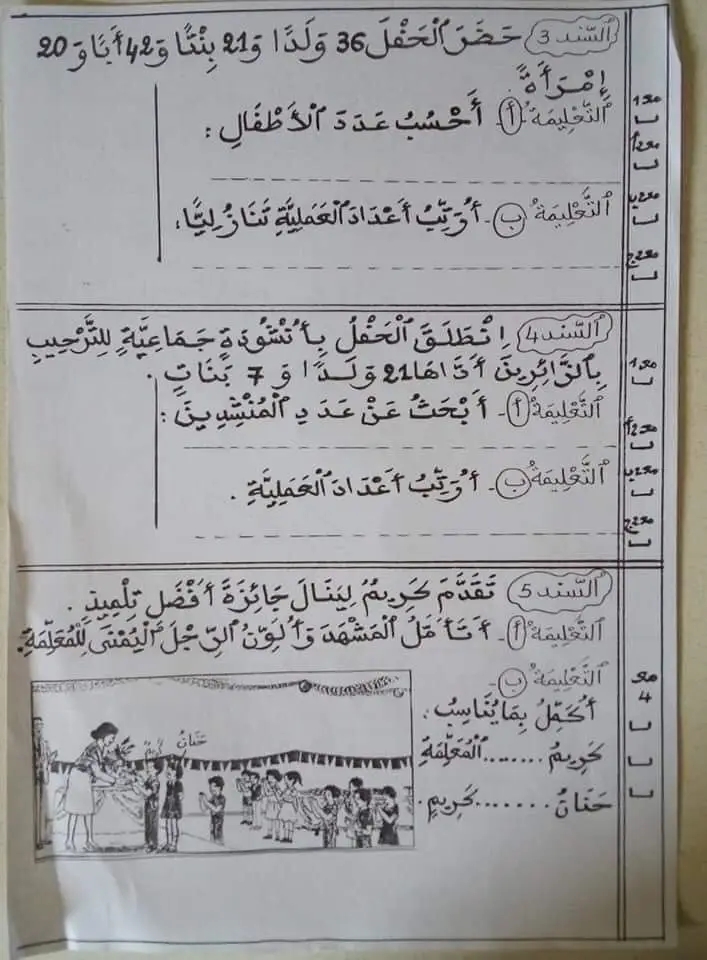 السّند 3 حَضَرَ الْحَفْلَ 36 وَلَدًا وَ 21 بِنْتًا وَ 42 أَبًا وَ 20
إِمْرَأَةً.
التَّعْلِيمَةُ أ - أَحْسُبُ عَدَدَ الْأَطْفَالِ :
التَّعْلِيمَةُ ب - أُرَتِّبُ أَعْدَادَ الْعَمَلِيَّةِ تَنَازُلِيًّا :
مع 1
مع 2 أ
مع 2 ب
مع 2 ج
السّند 4 اِنْطَلَقَ الْحَفْلُ بِأُنْشُودَةٍ جَمَاعِيَّةٍ لِلتَّرْحِيبِ
بِالزَّائِرِينَ أَدَّاهَا 21 وَلَدًا وَ 7 بَنَاتٍ .
التَّعْلِيمَةُ أ - أَبْحَثُ عَنْ عَدَدِ الْمُنْشِدِينَ :
التَّعْلِيمَةُ ب - أُرَتِّبُ أَعْدَادَ الْعَمَلِيَّةِ .
مع 1
مع 2 أ
مع 2 ب
مع 2 ج
السّند 5 تَقَدَّمَ كَرِيمُ لِيَنَالَ جَائِزَةَ أَفْضَلِ تِلْمِيذٍ .
التَّعْلِيمَةُ أ - أَتَأَمَّلُ الْمَشْهَدَ وَأُلَوِّنُ الرِّجْلَ الْيُمْنَى لِلْمُعَلِّمَةِ.
التَّعْلِيمَةُ ب
أُكَمِّلُ بِمَا يُنَاسِبُ :
كَرِيمُ ....... الْمُعَلِّمَةِ
حَنَانُ ....... كَرِيمٍ .
مع 4
حَنَانُ
كَرِيمُ